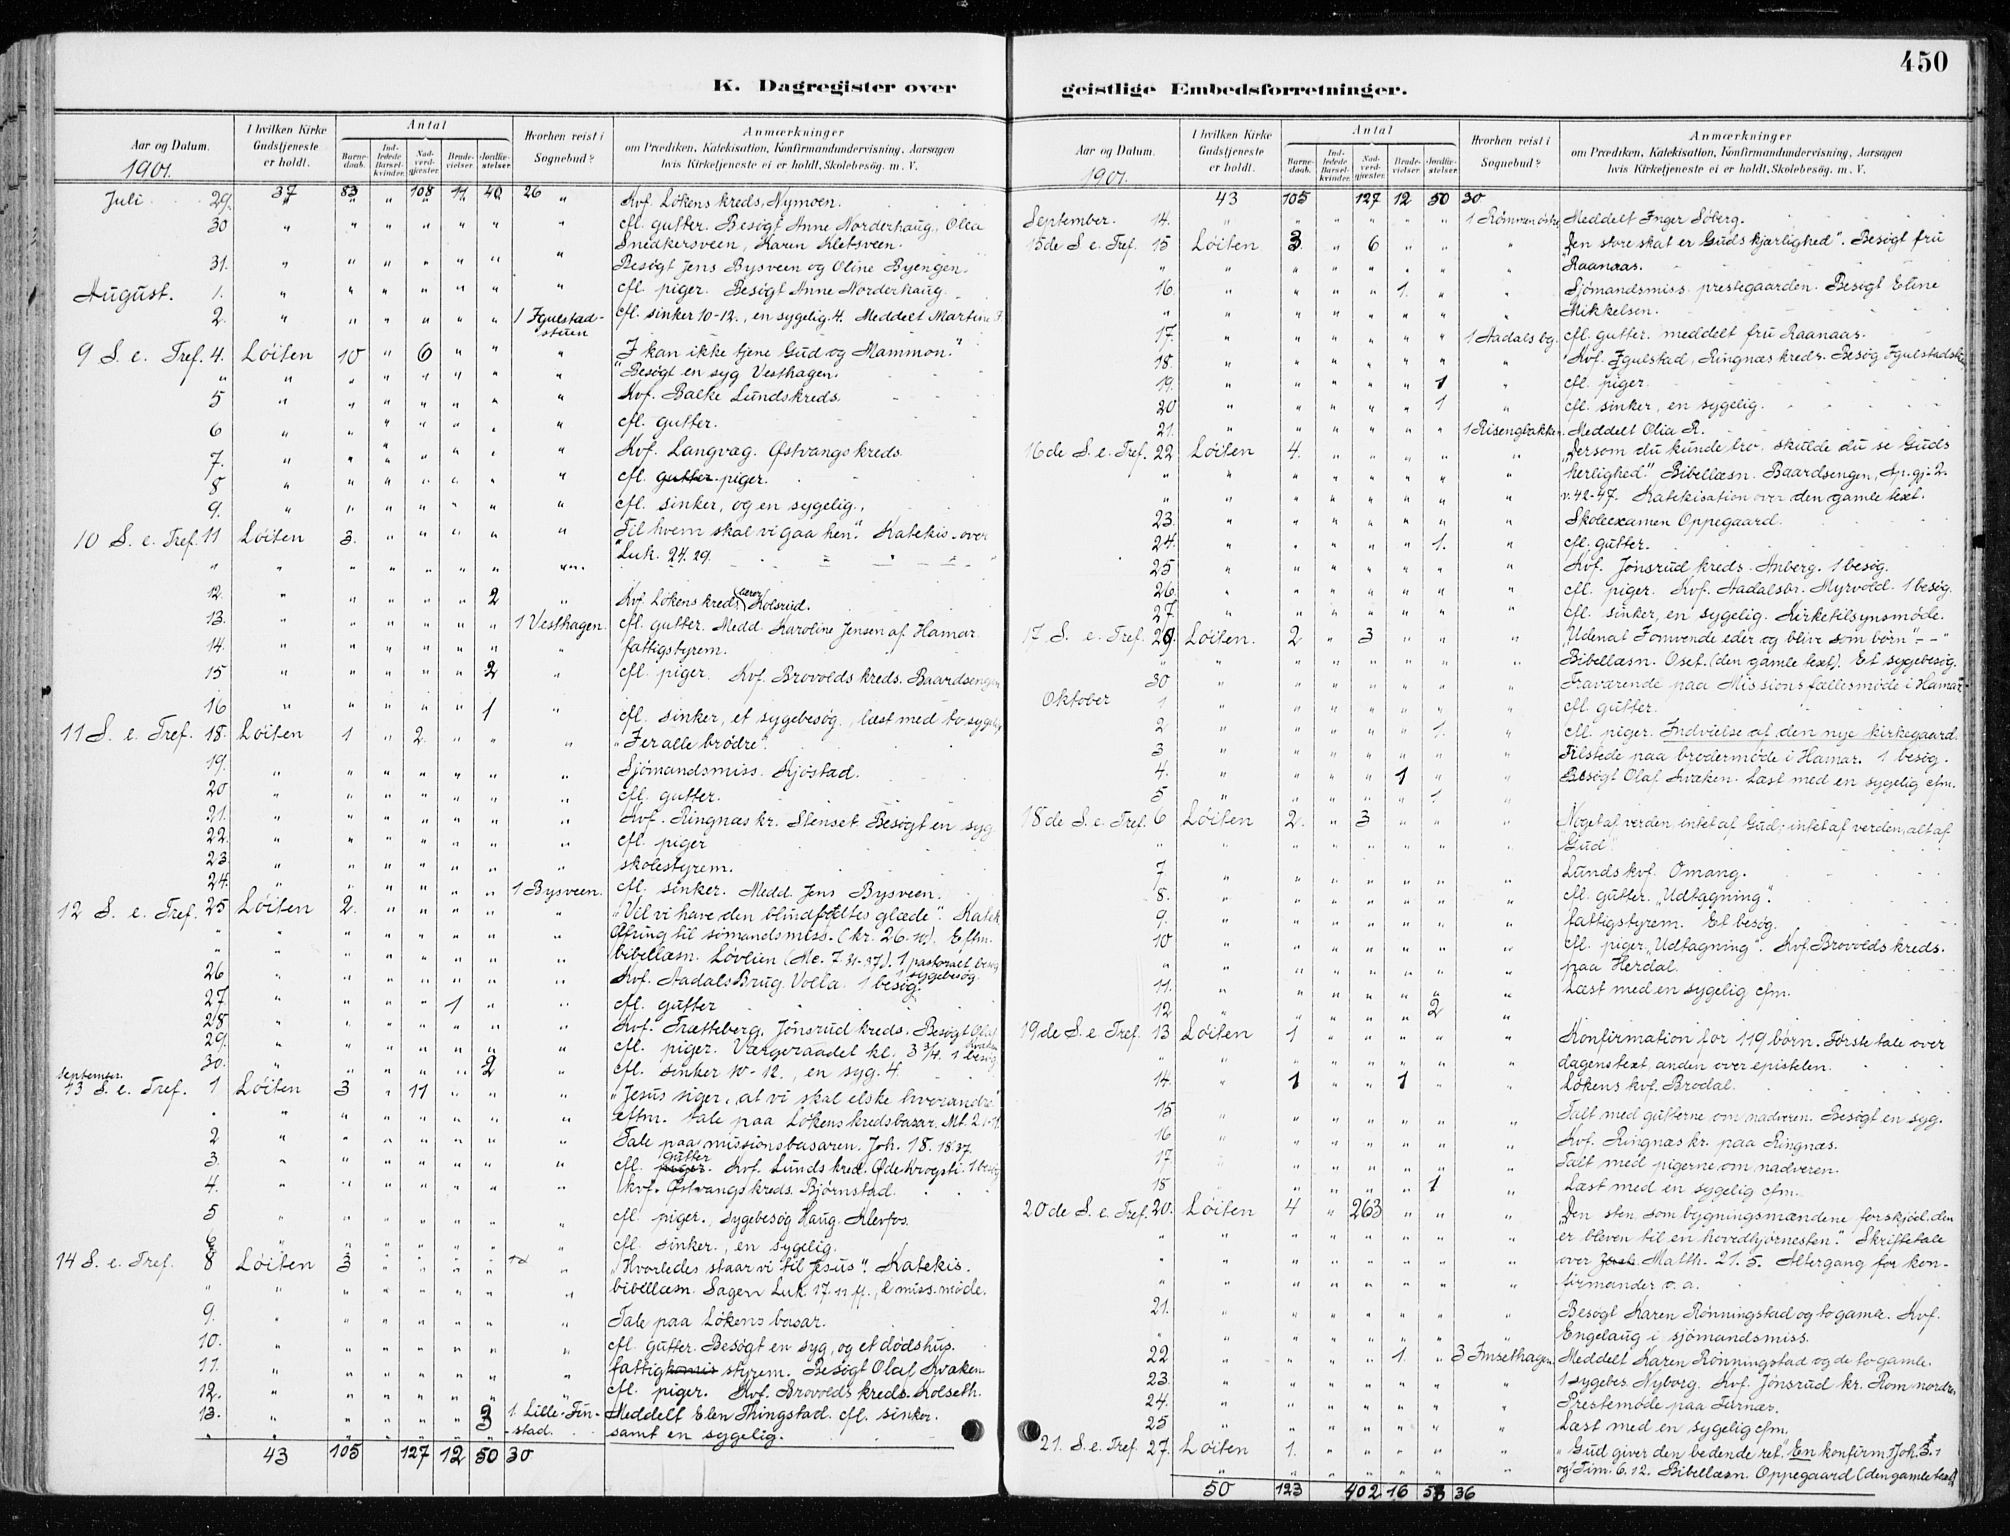 450
K. Dagregister over geistlige Embedsforretninger.
Aar og Datum. 1901.
I hvilken Kirke Gudstjeneste er holdt.
Antal
Barnedaab.
Indledede Barselkvinder.
Nadverdgjester.
Brudevielser.
Jordfæstelser.
Hvorhen reist i Sognebud?
Anmærkninger
om Prædiken, Katekisation, Konfirmandundervisning, Aarsagen
hvis Kirketjeneste ei er holdt, Skolebesøg. m. V.
37 83 108 11 40 26
Juli 29. " " " " " " " Kvf. Løkens kreds, Nymoen.
30 " " " " " " " cfl. gutter. Besøgt Anne Norderhaug, Olea
Snedkersveen, Karen Kletsveen.
31. " " " " " " " Besøgt Jens Bysveen og Oline Byengen.
August. 1. " " " " " " " cfl. piger. Besøgt Anne Norderhaug.
2. " " " " " " 1 Fgulstad-stuen cfl. sinker 10-12., en sygelig. 4. Meddelt Martine F
9 S. e. Tref. 4. Løiten 10 " 6 " " " I kan ikke tjene Gud og Mammon."
" " " " " " " " Besøgt en syg Vesthagen.
5 " " " " " " " Kvf. Balke Lundskreds.
6 " " " " " " " cfl. gutter.
7. " " " " " " " Kvf. Langvag. Østvangs kreds.
8 " " " " " " " cfl. gutter piger.
9. " " " " " " " cfl. sinker, og en sygelig.
10 S. e. Tref. 11 Løiten 3. " " " " " Til hvem skal vi gaa hen". Katekis. over
" " " " " " " Luk. 24. 29.
12. " " " " " 2 " Kvf. Løkens kreds, Kolsrud.
13. " " " " " " 1 Vesthagen. cfl. gutter. Medd. Karoline Jensen af Hamar.
14. " " " " " " " fattigstyrem.
15 " " " " " 2 " cfl. piger. Kvf. Brovolds kreds. Baardsengen
16 " " " " " 1 " cfl. sinker, et sygebesøg, læst med to sygelig
11 S. e. Tref. 18. Løiten 1 " 2. " " " "I er alle brødre".
19. " " " " " " " Sjømandsmiss. Kjøstad.
20 " " " " " " " cfl. gutter.
21. " " " " " " " Kvf. Ringnæs kr. Stenset. Besøgt en syg
22. " " " " " " " cfl. piger
23. " " " " " " " skolestyrem.
24. " " " " " " 1 Bysveen. cfl. sinker. Medd. Jens Bysveen.
12 S. e. Tref. 25 Løiten 2. " " " " " "Vil vi have den blindfødtes glæde". Katek
" " " " " " " Ofring til sømandsmiss. (kr. 26.10). Eftm.
" " " " " " " bibellæsn. Løvlien (Mc. 7. 31-37). 1 pastoralt besøg
26 " " " " " " " Kvf. Aadals Brug. Volla. 1 besøg. 1 sygebesøg
27 " " " " 1 " " cfl. gutter
28 " " " " " " " Kvf. Trætteberg. Jønsrud kreds. Besøgt Olaf Kvaken
29. " " " " " " " cfl. piger. Værgeraadet kl. 3 3/4. 1 besøg
30. " " " " " 2 " cfl. sinker 10-12., en syg. 4.
September.
13 S. e. Tref. 1 Løiten 3 " 11 " " " "Jesus siger, at vi skal elske hverandre"
" " " " " " " eftm. tale paa Løkens kredsbasar. Mt. 21-11.
2 " " " " " " " Tale paa missionsbasaren. Joh. 18. 18.37.
3. " " " " " " " cfl. piger gutter. Kvf. Lunds kred. Øde Krogsti. 1 besøg
4. " " " " " " " kvf. Østvangs kreds. Bjørnstad.
5 " " " " " " " cfl. piger., sygebesøg Haug. Klevfos.
6 " " " " " " " cfl. sinker., en sygelig.
14 S. e. Tref. 8 Løiten 3 " " " " " "Hvorledes staar vi til Jesus". Katekis.
" " " " " " " bibellæsn. Sagen Luk. 17. 11 ff., & miss. møde.
9. " " " " " " " Tale paa Løkens basar.
10. " " " " " " " cfl. gutter. Besøgt en syg, og et dødshus.
11. " " " " " " " fattigkomis styrem. Besøgt Olaf Kvaken.
12. " " " " " " " cfl. piger. Kvf. Brovolds kreds. Kolseth.
13. " " " " " 3 1. Lille-Finstad. Meddelt Elen Thingstad. cfl. sinker.
samt en sygelig.
43 105 127 12 50 30
Aar og Datum. 1901.
I hvilken Kirke Gudstjeneste er holdt.
Antal
Barnedaab.
Indledede Barselkvinder.
Nadverdgjester.
Brudevielser.
Jordfæstelser.
Hvorhen reist i Sognebud?
Anmærkninger
om Prædiken, Katekisation, Konfirmandundervisning, Aarsagen
hvis Kirketjeneste ei er holdt, Skolebesøg. m. V.
43 105 127 12 50 30
September. 14. " " " " " " 1 Rømmen østre Meddelt Inger Søberg.
15de S. e. Tref. 15 Løiten 3. " 6 " " " "Den store skat er Guds kjærlighed". Besøgt fru
" " " " " " " Raanaas.
16 " " " " 1. " " Sjømandsmiss. prestegaarden. Besøgt Eline
" " " " " " " Mikkelsen.
17. " " " " " " 1 Aadals bg. cfl. gutter. meddelt fru Raanaas.
18. " " " " " " " Kvf. Fgulstad, Ringnæs kreds. Besøg Fgulstadsk
19. " " " " " 1 " cfl. piger.
20 " " " " " 1 " cfl. sinker, en sygelig.
21. " " " " " " 1 Risengbakken. Meddelt Olia R.
16de S. e. Tref. 22 Løiten 4. " " " " " "Dersom du kunde tro, skulde du se Guds
" " " " " " " herlighed". Bibellæsn. Baardsengen, Ap. gj. 2.
" " " " " " " v. 42-47. Katekisation over den gamle text.
23. " " " " " " " Skoleexamen Oppegaard.
24. " " " " " 1. " cfl. gutter.
25 " " " " " " " Kvf. Jønsrud kreds. Anberg. 1 besøg.
26 " " " " " " " cfl. piger. Kvf. Aadalsbr. Myrvold. 1 besøg.
27. " " " " " " " cfl. sinker, en sygelig. Kirketilsynsmøde.
17 S. e. Tref. 29 Løiten. 2 " 3 " " " "Uden at I omvende eder og blive som børn" - - "
" " " " " " " Bibellæsn. Oset. (den gamle text). Et sygebesøg.
30 " " " " " " " Fraværende paa Missionsfællesmøde i Hamar
Oktober 1 " " " " " " " cfl. gutter.
2 " " " " " 1. " cfl. piger. Indvielse af den nye kirkegaard.
3 " " " " " " " Tilstede paa brodermøde i Hamar. 1 besøg.
4. " " " " 1 " " Besøgt Olaf Kvaken. Læst med en sygelig cfm.
5 " " " " " 1. "
18de S. e. Tref. 6 Løiten 2. " 3 " " " Noget af verden, intet af Gud; intet af verden, alt af
" " " " " " " Gud".
7 " " " " " " " Lunds kvf. Omang.
8. " " " " " " " cfl. gutter "Udtagning".
9. " " " " " " " fattigstyrem. Et besøg.
10 " " " " " " " cfl. piger "Udtagning". Kvf. Brovolds kreds.
" " " " " " " paa Herdal.
11. " " " " " " " Læst med en sygelig cfm.
12 " " " " " 2 "
19de S. e. Tref. 13 Løiten 1 " " " " " Konfirmation for 119 børn. Første tale over
" " " " " " " dagens text, anden over epistelen.
14. " 1 " " 1 " " Løkens kvf. Brodal.
15 " " " " " " " Talt med gutterne om nadveren. Besøgt en syg.
16 " " " " " " " Kvf. Ringnæs kr. paa Ringnæs.
17 " " " " " " " Talt med pigerne om nadveren.
18 " " " " " 1 " Læst med en sygelig cfm.
20de S. e. Tref. 20. Løiten 4 " 263 " " " "Den sten, som bygningsmændene forskjøt, den
er bleven til en hovedhjørnesten." Skriftetale
" " " " " " " over Jesaia Matth. 21. 5. Altergang for kon-
" " " " " " " firmander o. a.
21. " " " " " " " Besøgt Karen Rønningstad og to gamle. Kvf.
" " " " " " " Engelaug i sjømandsmiss.
22 " " " " 1. " 3 Imsethagen Meddelt Karen Rønningstad og de to gamle.
23. " " " " " " " 1 sygebes. Nyborg. Kvf. Jønsrud kr. Rom nordre
24. " " " " " " " Prestemøde paa Furnæs.
25 " " " " " " " Læst med en sygelig cfm.
21. S. e. Tref. 27. Løiten 1. " " " " " "Gud giver den bedende ret. En konfirm. 1 Joh. 3. 1
" " " " " " " og 1 Tim. 6. 12. Bibellæsn. Oppegaard (den gamle text)
50 123 402 16 58 36